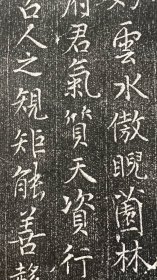 雲水傲睨園林
府君氣質天資行
古人之規矩能善